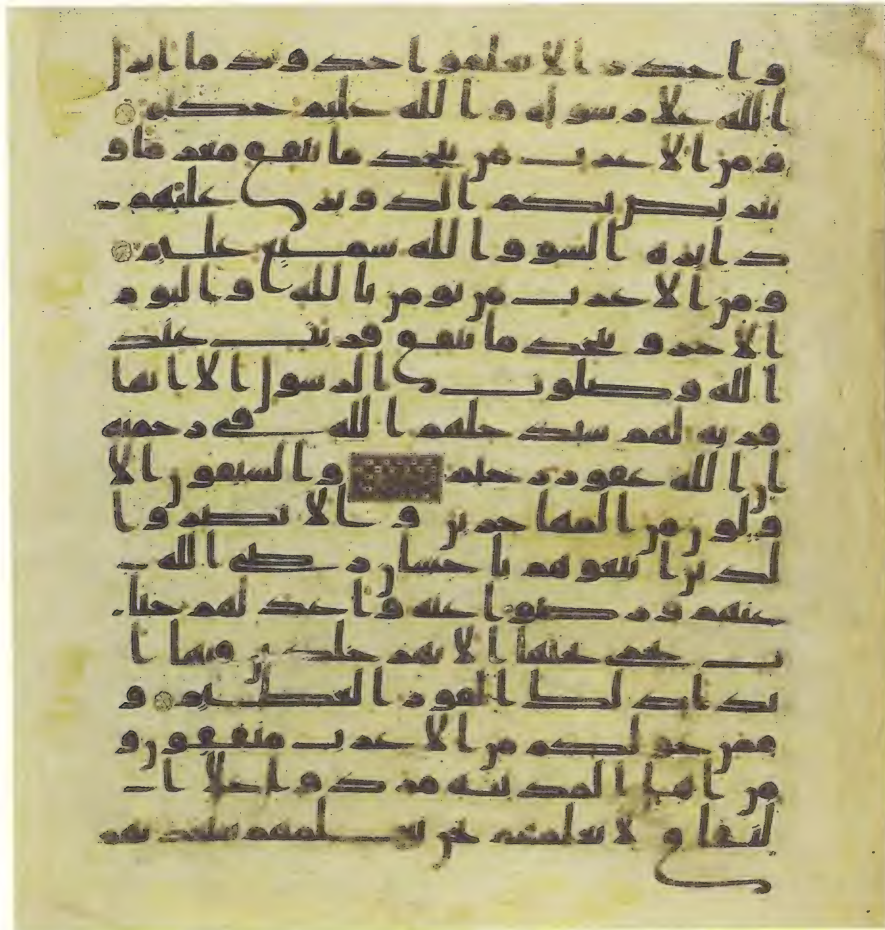 واجدر الا يعلموا حدود ما انزل
الله علا رسوله والله عليم حكيم
ومن الاعراب من يتخذ ما ينفق مغرما و
يتربص بكم الدوير عليهم
دايره السو والله سميع عليم
ومن الاعراب من يومن بالله واليوم
الاخر ويتخذ ما ينفق قربت عند
الله وصلوت الرسول الا انها
قربه لهم سيدخلهم الله في رحمته
ان الله غفور رحيم والسبقون الا
ولون من المهاجرين والانصر وا
لذين اتبعوهم باحسان رضي الله
عنهم ورضوا عنه واعد لهم جنا
ت تجري تحتها الانهر خلدين فيها ا
بدا ذلك الفوز العظيم و
ممن حولكم من الاعراب منفقون و
من اهل المدينه مردوا علا ا
لنفاق لا تعلمهم نحن نعلمهم سنعذبهم